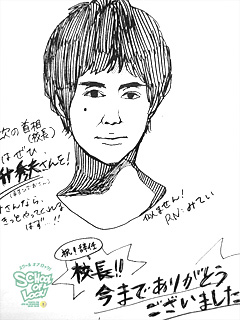 次の首相
(校長)
はぜひ
さんを!
さんなら、
きっとやってくれる
はず!!
似ません!
R.N.みてい
祝!退任
校長!!
今までありがとう
ございました
SCHOOL
OF
LOCK!